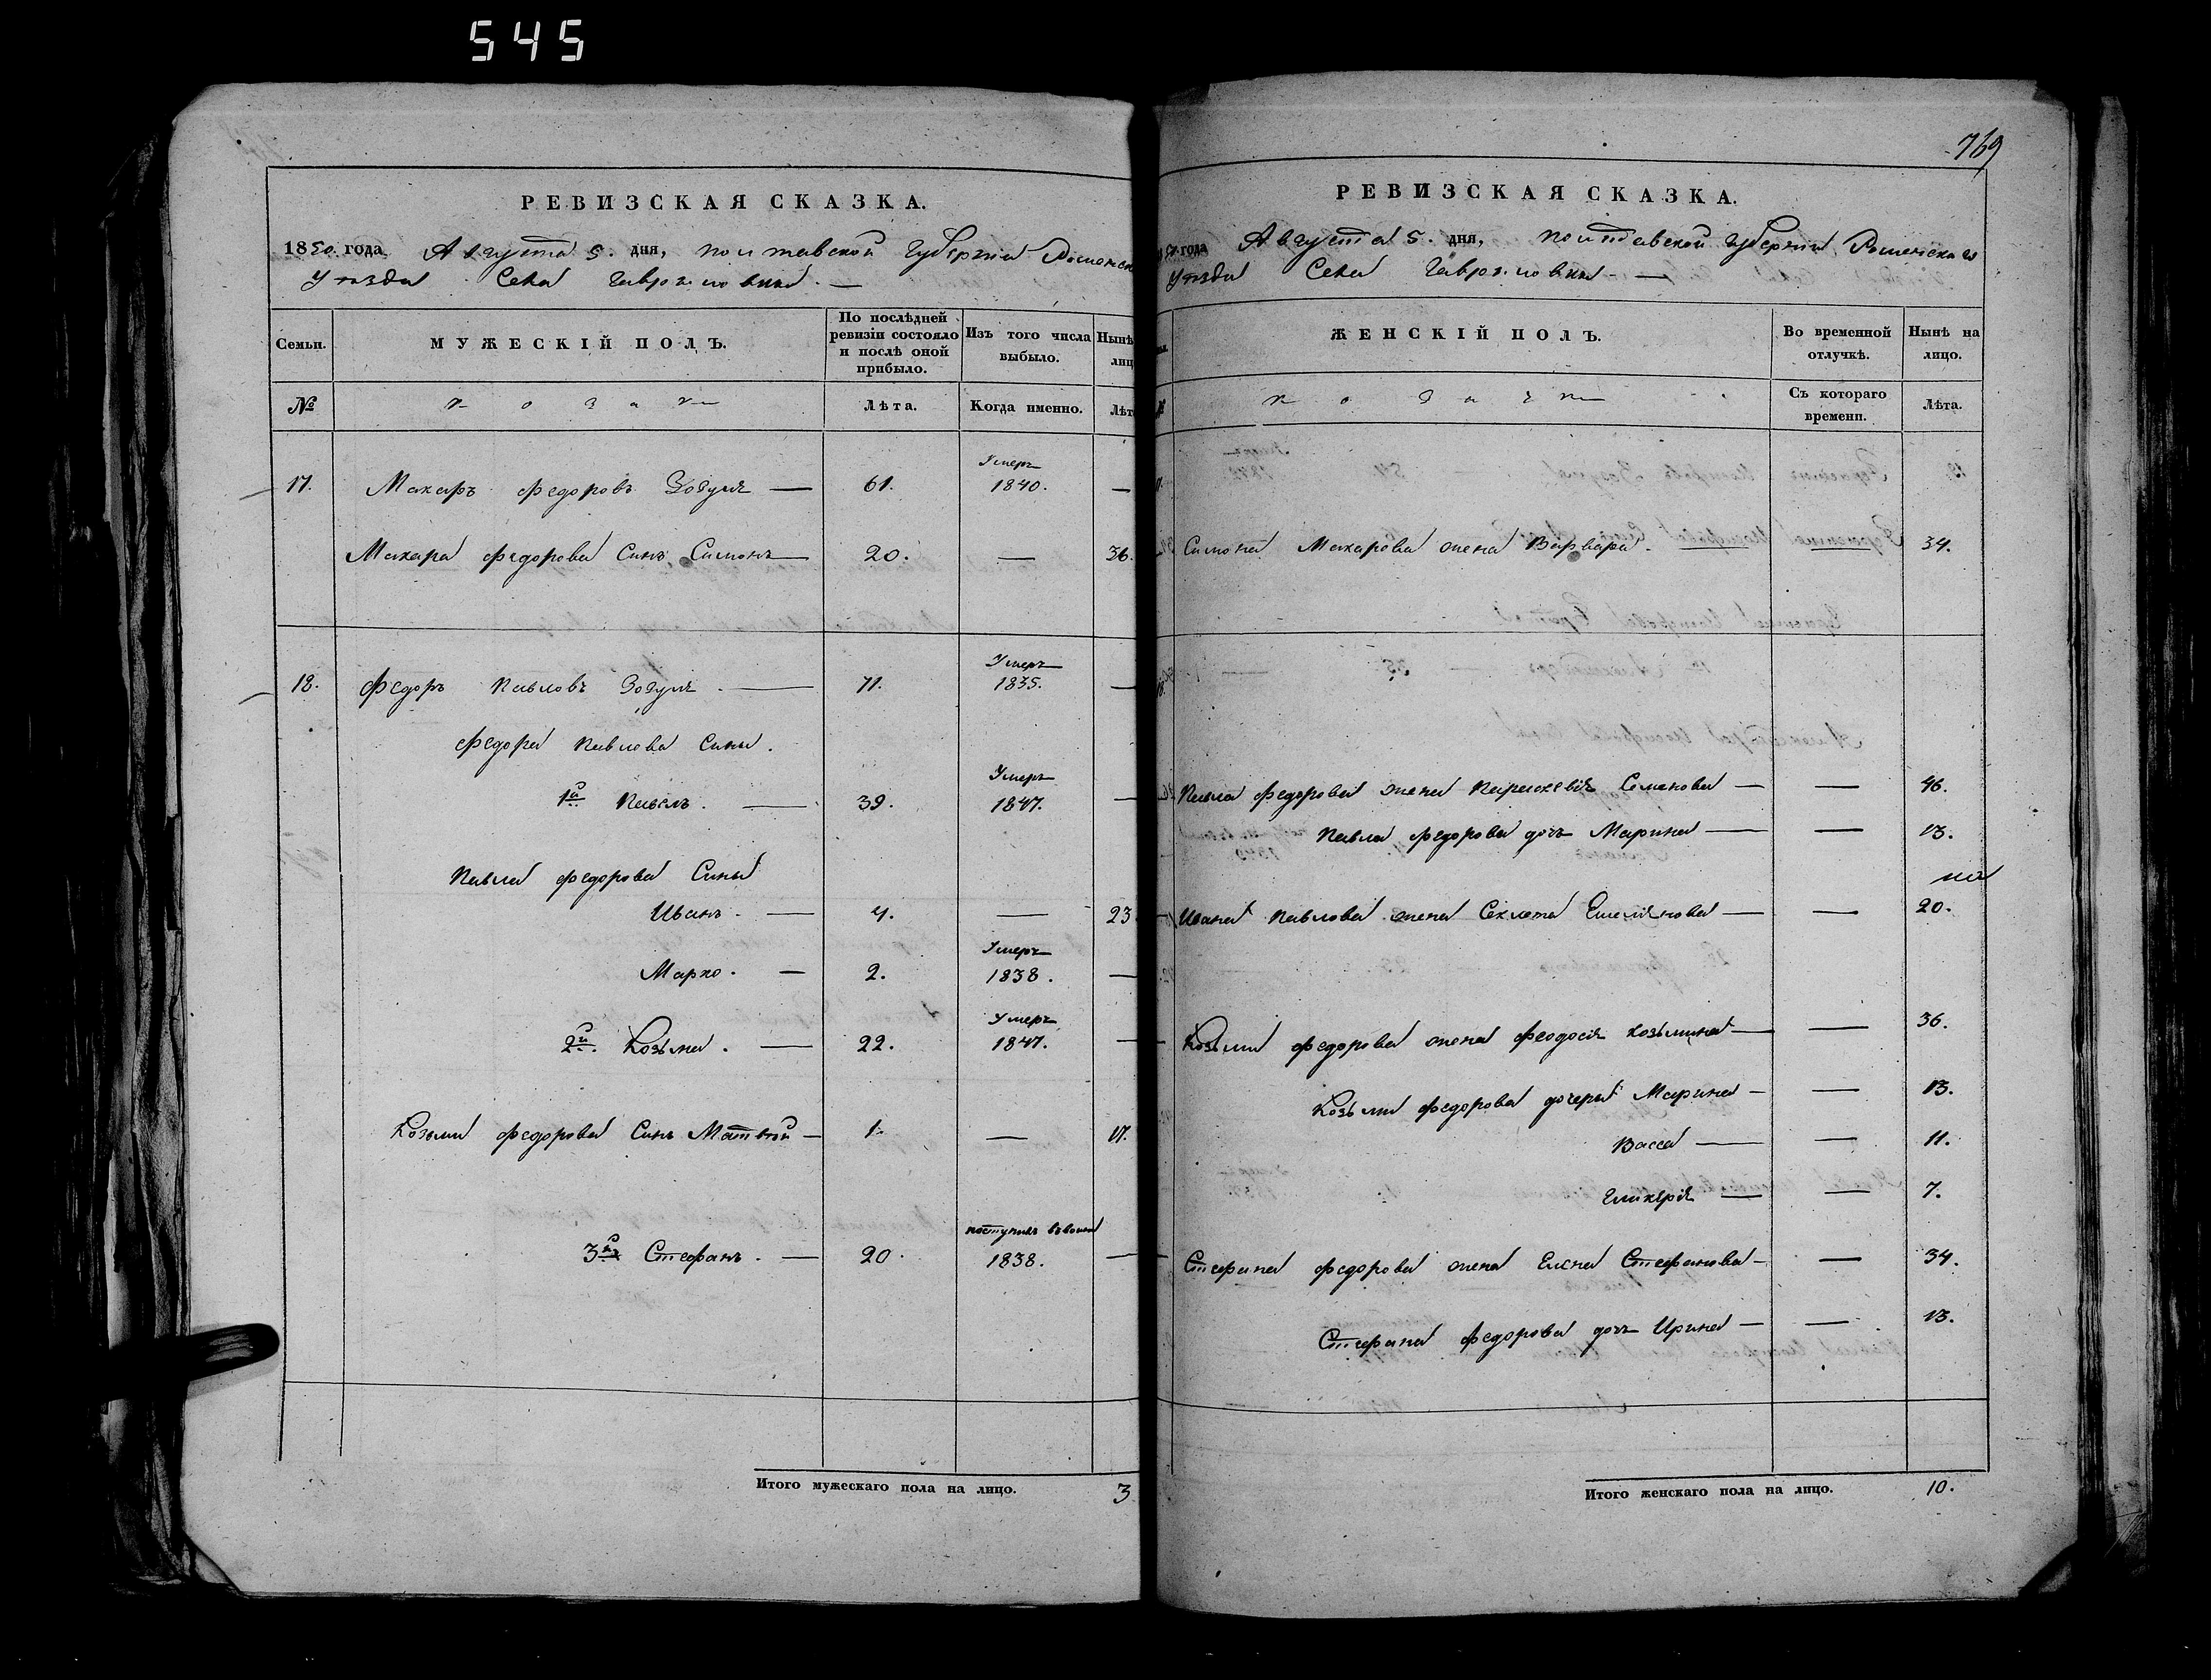 545
РЕВИЗСКАЯ СКАЗКА.
1850. года Августа 5. дня, Полтавской Губерніи Роменск
Уѣзда Села Гавриловки. —
Семьи. МУЖЕСКІЙ ПОЛЪ. По послѣдней ревизіи состояло и послѣ оной прибыло. Изъ того числа выбыло. Нынѣ лиц
№ козаки Лѣта. Когда именно. Лѣт
17. Макаръ Федоровъ Зозуля — 61. Умеръ 1840. —
Макара Федорова Синъ Симонъ — 20. — 36.
18. Федоръ Павловъ Зозуля. — 71. Умеръ 1835. —
Федора Павлова Сины.
1й Павелъ. — 39. Умеръ 1847. —
Павла Федорова Сины
Иванъ. — 4. — 23
Марко. — 2. Умеръ 1838. —
2й. Козьма. — 22. Умеръ 1847. —
Козьми Федорова Синъ Матвѣй — 1. — 17.
3й Стефанъ. — 20. поступилъ 1838. —
Итого мужескаго пола на лицо. 3
769
РЕВИЗСКАЯ СКАЗКА.
года Августа 5. дня, Полтавской Губерніи Роменскаго
Уѣзда Села Гавриловки. —
ЖЕНСКІЙ ПОЛЪ. Во временной отлучкѣ. Нынѣ на лицо.
№ козачки Съ котораго времени. Лѣта.
Симона Макарова жена Варвара. — — 34.
Павла Федорова жена Параскевія Семенова — — 46.
Павла Федорова дочь Марина — — 13.
Ивана Павлова жена Секлета Емелянова — — 20.
Козьми Федорова жена Феодосія Козьмина — — 36.
Козьми Федорова дочери Марина — — 13.
Васса — — 11.
Гликерія — — 7.
Стефана Федорова жена Елена Стефанова — — 34.
Стефана Федорова дочь Ирина — — 13.
Итого женскаго пола на лицо. 10.